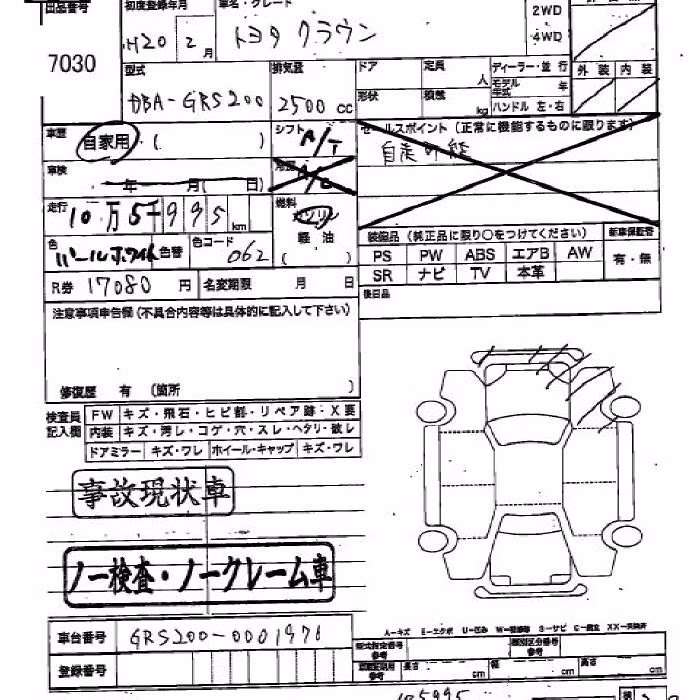 出品番号 初度登録年月 車名・グレード
7030 H20 2月 トヨタ クラウン 2WD 4WD
型式 排気量 ドア 定員 人 ディーラー・並行 外装 内装
DBA-GRS200 2500 cc 形状 積載 kg モデル年式 年 ハンドル 左・右
車歴 自家用 ( ) シフト A/T セールスポイント (正常に機能するものに限ります)
車検 年 月( 日) A/C
走行 10万5千995km 燃料 ガソリン 軽油 ( )
装備品 (純正品に限り○をつけてください) 新車保証書
色 パールホワイト 色替 色コード 062 PS PW ABS エアB AW 有・無
SR ナビ TV 本革
R券 17080 円 名変期限 月 日 後日品
注意事項申告欄 (不具合内容等は具体的に記入して下さい)
修復歴 有 (箇所 )
検査員記入欄 FW キズ・飛石・ヒビ割・リペア跡・X要
内装 キズ・汚レ・コゲ・穴・スレ・ヘタリ・欲レ
ドアミラー キズ・ワレ ホイール・キャップ キズ・ワレ
事故現状車
ノー検査・ノークレーム車
A-キズ E-エクボ U-凹み S-サビ C-腐食
車台番号 GRS200-0001971 型式指定番号 参考 類別区分番号 参考
登録番号 参考 長さ cm 幅 cm 高さ cm